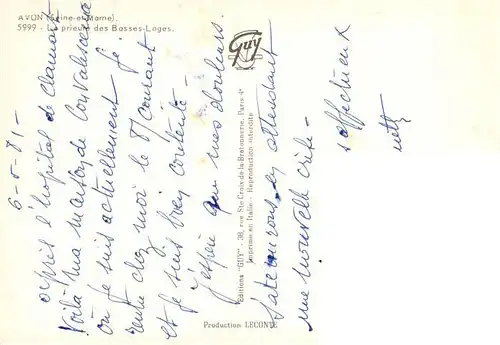 AVON (Seine-et-Marne).
5999 - Le prieuré des Basses-Loges.
Guy
6-5-81-
après l'hôpital de Clamart
Voilà ma maison de Convalescence
où je suis actuellement je
rentre chez moi le 8/ courant
et je suis bien contente -
j'espère que mes douleurs
s'atténurons, en attendant
une nouvelle crise -
affectueux
Editions "GUY" - 38, rue Ste Croix-de-la-Bretonnerie, Paris 4e
Imprimé en Italie - Reproduction interdite
Production LECONTE